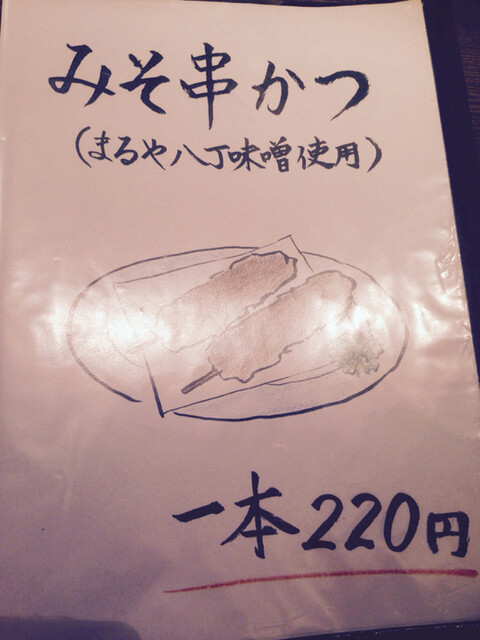 みそ串かつ
(まるや八丁味噌使用)
一本220円